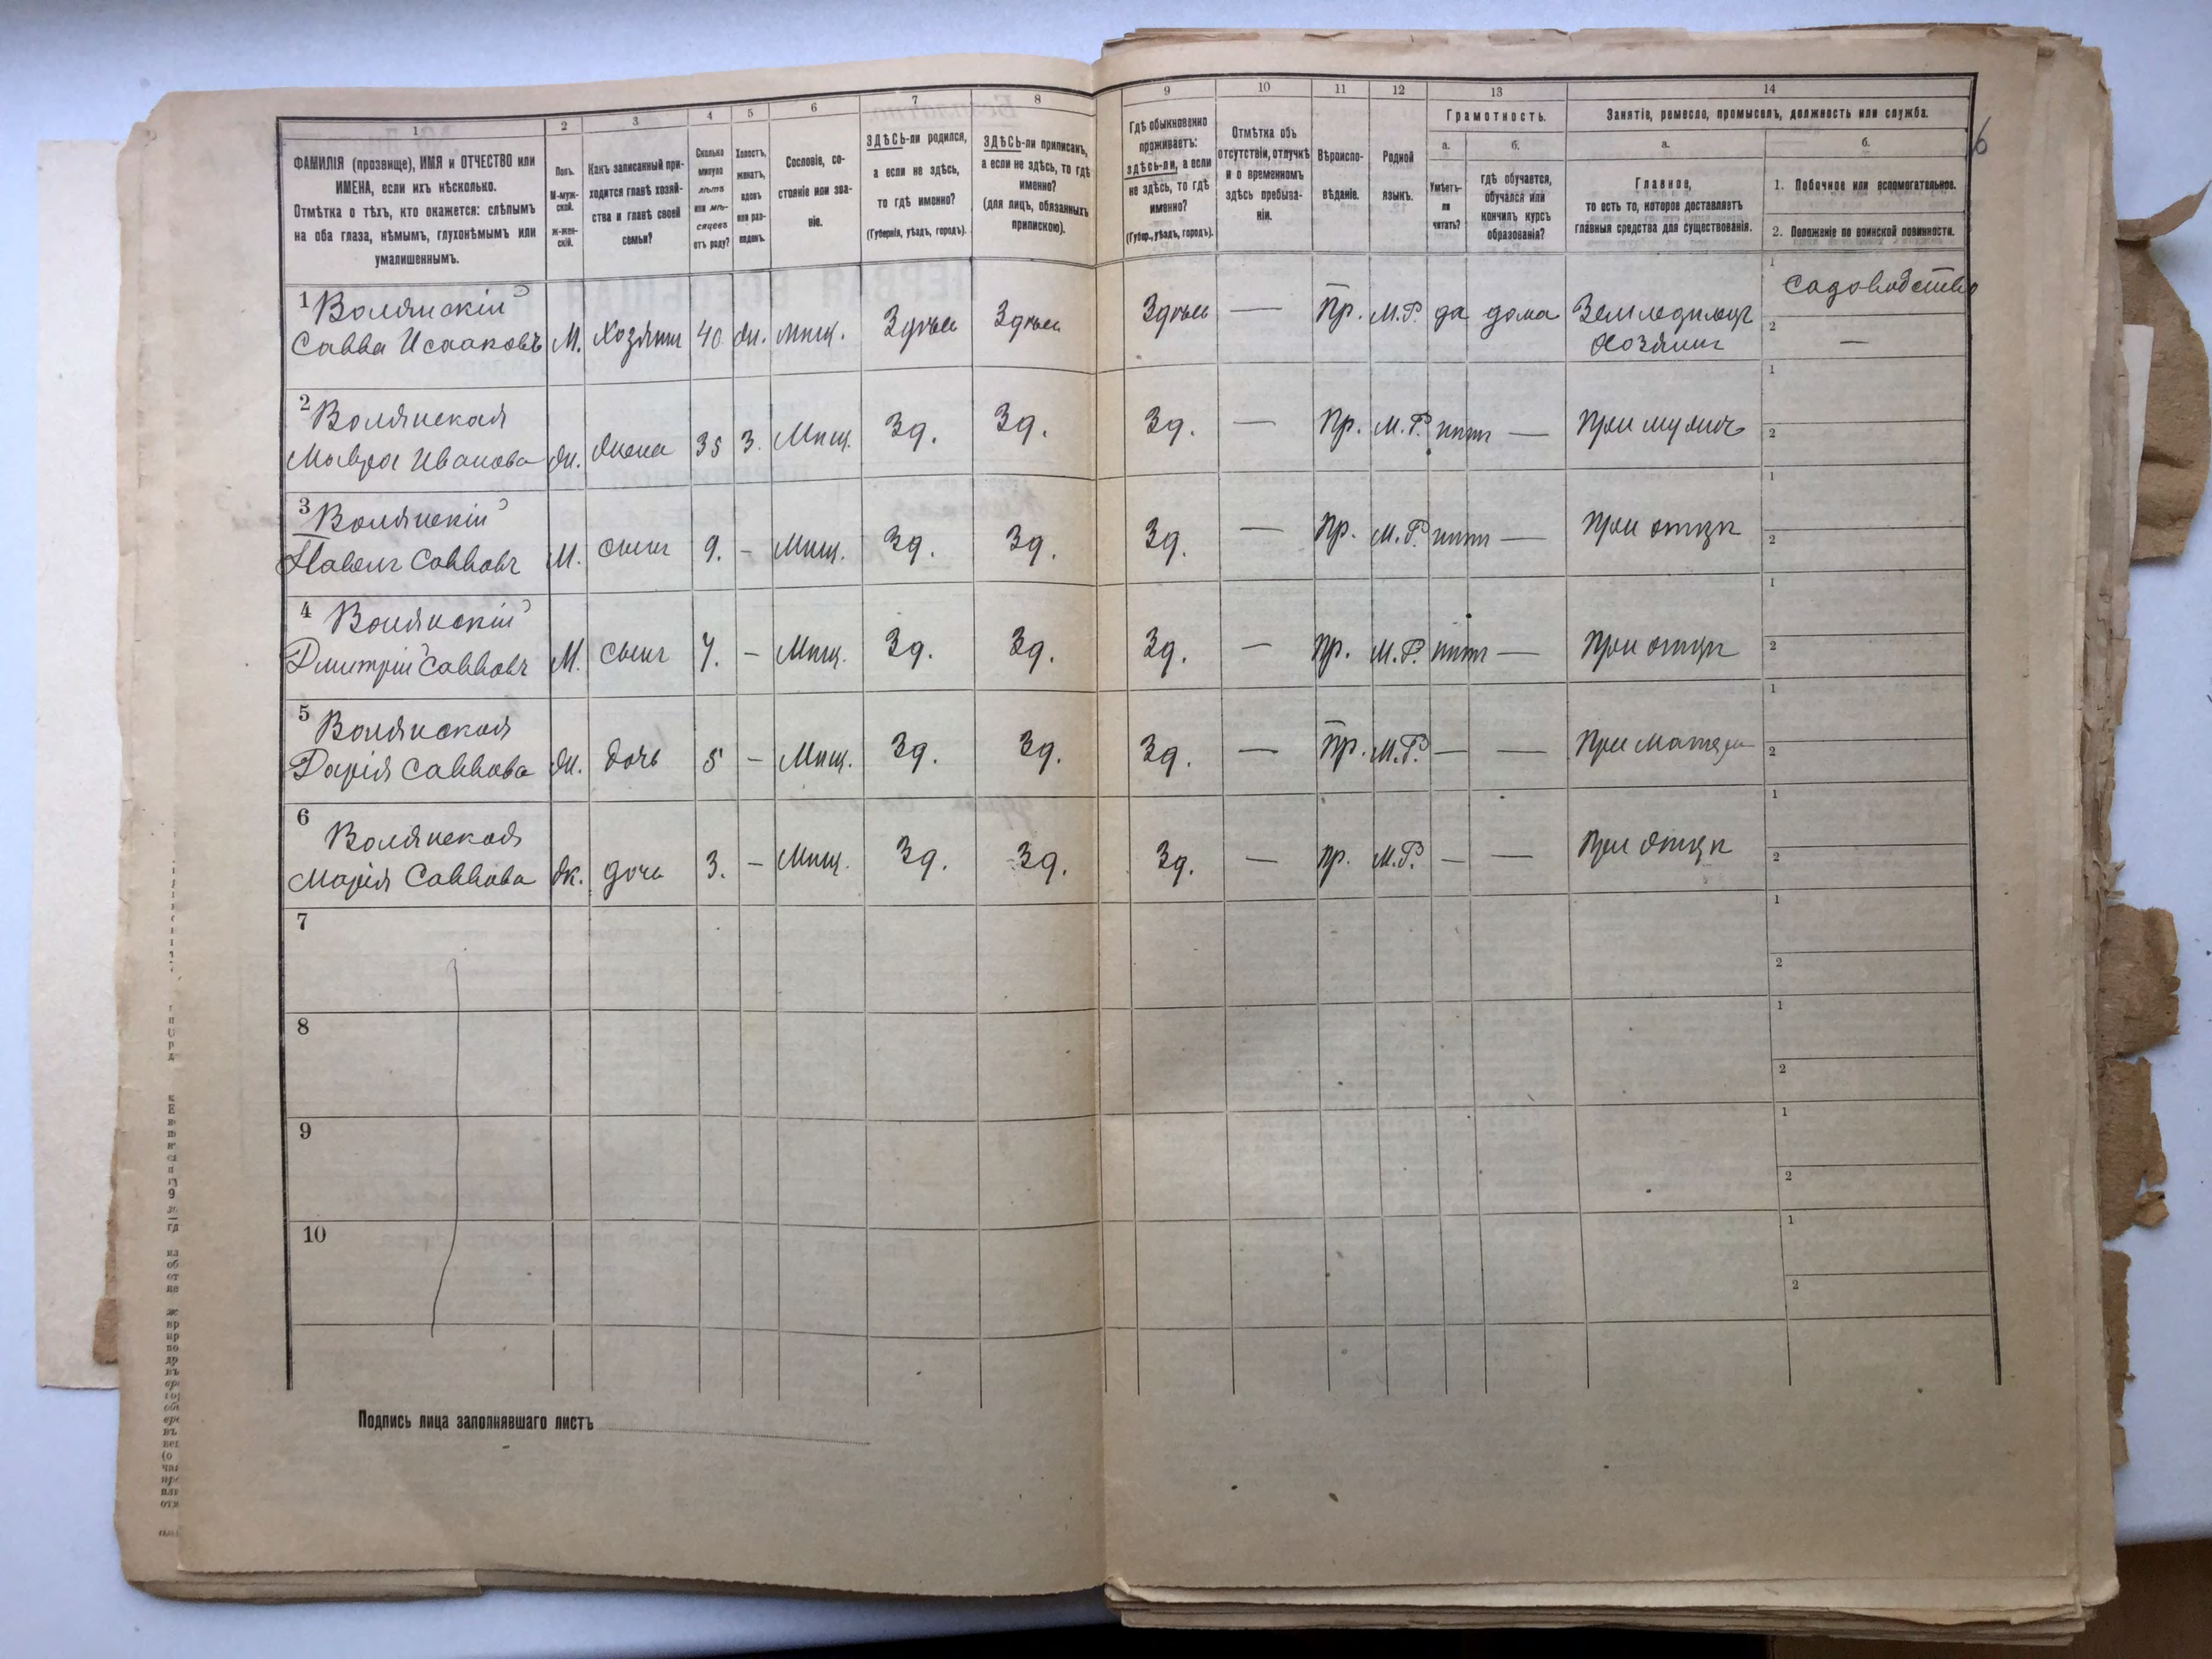 1
ФАМИЛІЯ (прозвище), ИМЯ и ОТЧЕСТВО или
ИМЕНА, если ихъ нѣсколько.
Отмѣтка о тѣхъ, кто окажется: слѣпымъ
на оба глаза, нѣмымъ, глухонѣмымъ или
умалишеннымъ.
2
Полъ.
М-муж-
ской.
ж-жен-
скій.
3
Какъ записанный при-
ходится главѣ хозяй-
ства и главѣ своей
семьи?
4
Сколько
минуло
лѣтъ
или мѣ-
сяцевъ
отъ роду?
5
Холостъ,
женатъ,
вдовъ
или раз-
веденъ.
6
Сословіе, со-
стояніе или зва-
ніе.
7
ЗДѢСЬ-ли родился,
а если не здѣсь,
то гдѣ именно?
(Губернія, уѣздъ, городъ).
8
ЗДѢСЬ-ли приписанъ,
а если не здѣсь, то гдѣ
именно?
(для лицъ, обязанныхъ
припискою).
9
Гдѣ обыкновенно
проживаетъ:
здѣсь-ли, а если
не здѣсь, то гдѣ
именно?
(Губер., уѣздъ, городъ).
10
Отмѣтка объ
отсутствіи, отлучкѣ
и о временномъ
здѣсь пребыва-
ніи.
11
Вѣроиспо-
вѣданіе.
12
Родной
языкъ.
13
Грамотность.
а.
Умѣетъ-
ли
читать?
б.
гдѣ обучается,
обучался или
кончилъ курсъ
образованія?
14
Занятіе, ремесло, промыселъ, должность или служба.
а.
Главное,
то есть то, которое доставляетъ
главныя средства для существованія.
б.
1. Побочное или вспомогательное.
2. Положеніе по воинской повинности.
6
1 Волянскій
Савва Исааковъ М. хозяинъ 40 ж. мѣщ. Здѣсь Здѣсь Здѣсь — Пр. М.Р. да дома Земледѣлецъ
Хозяинъ
1 Садоводство
2 —
2 Волянская
Мавра Иванова ж. жена 35 з. Мѣщ. Зд. Зд. Зд. — Пр. М.Р. нѣтъ — При мужѣ
1
2
3 Волянскій
Павелъ Саввовъ М. сынъ 9. - Мѣщ. Зд. Зд. Зд. — Пр. М.Р. нѣтъ — При отцѣ
1
2
4 Волянскій
Дмитрій Саввовъ М. сынъ 7. - Мѣщ. Зд. Зд. Зд. — Пр. М.Р. нѣтъ — При отцѣ
1
2
5 Волянская
Дарія Саввова ж. дочь 5 - Мѣщ. Зд. Зд. Зд. — Пр. М.Р. — — При матери
1
2
6 Волянская
Марія Саввова ж. дочь 3. - Мѣщ. Зд. Зд. Зд. — Пр. М.Р. — — При отцѣ
1
2
7
1
2
8
1
2
9
1
2
10
1
2
Подпись лица заполнявшаго листъ